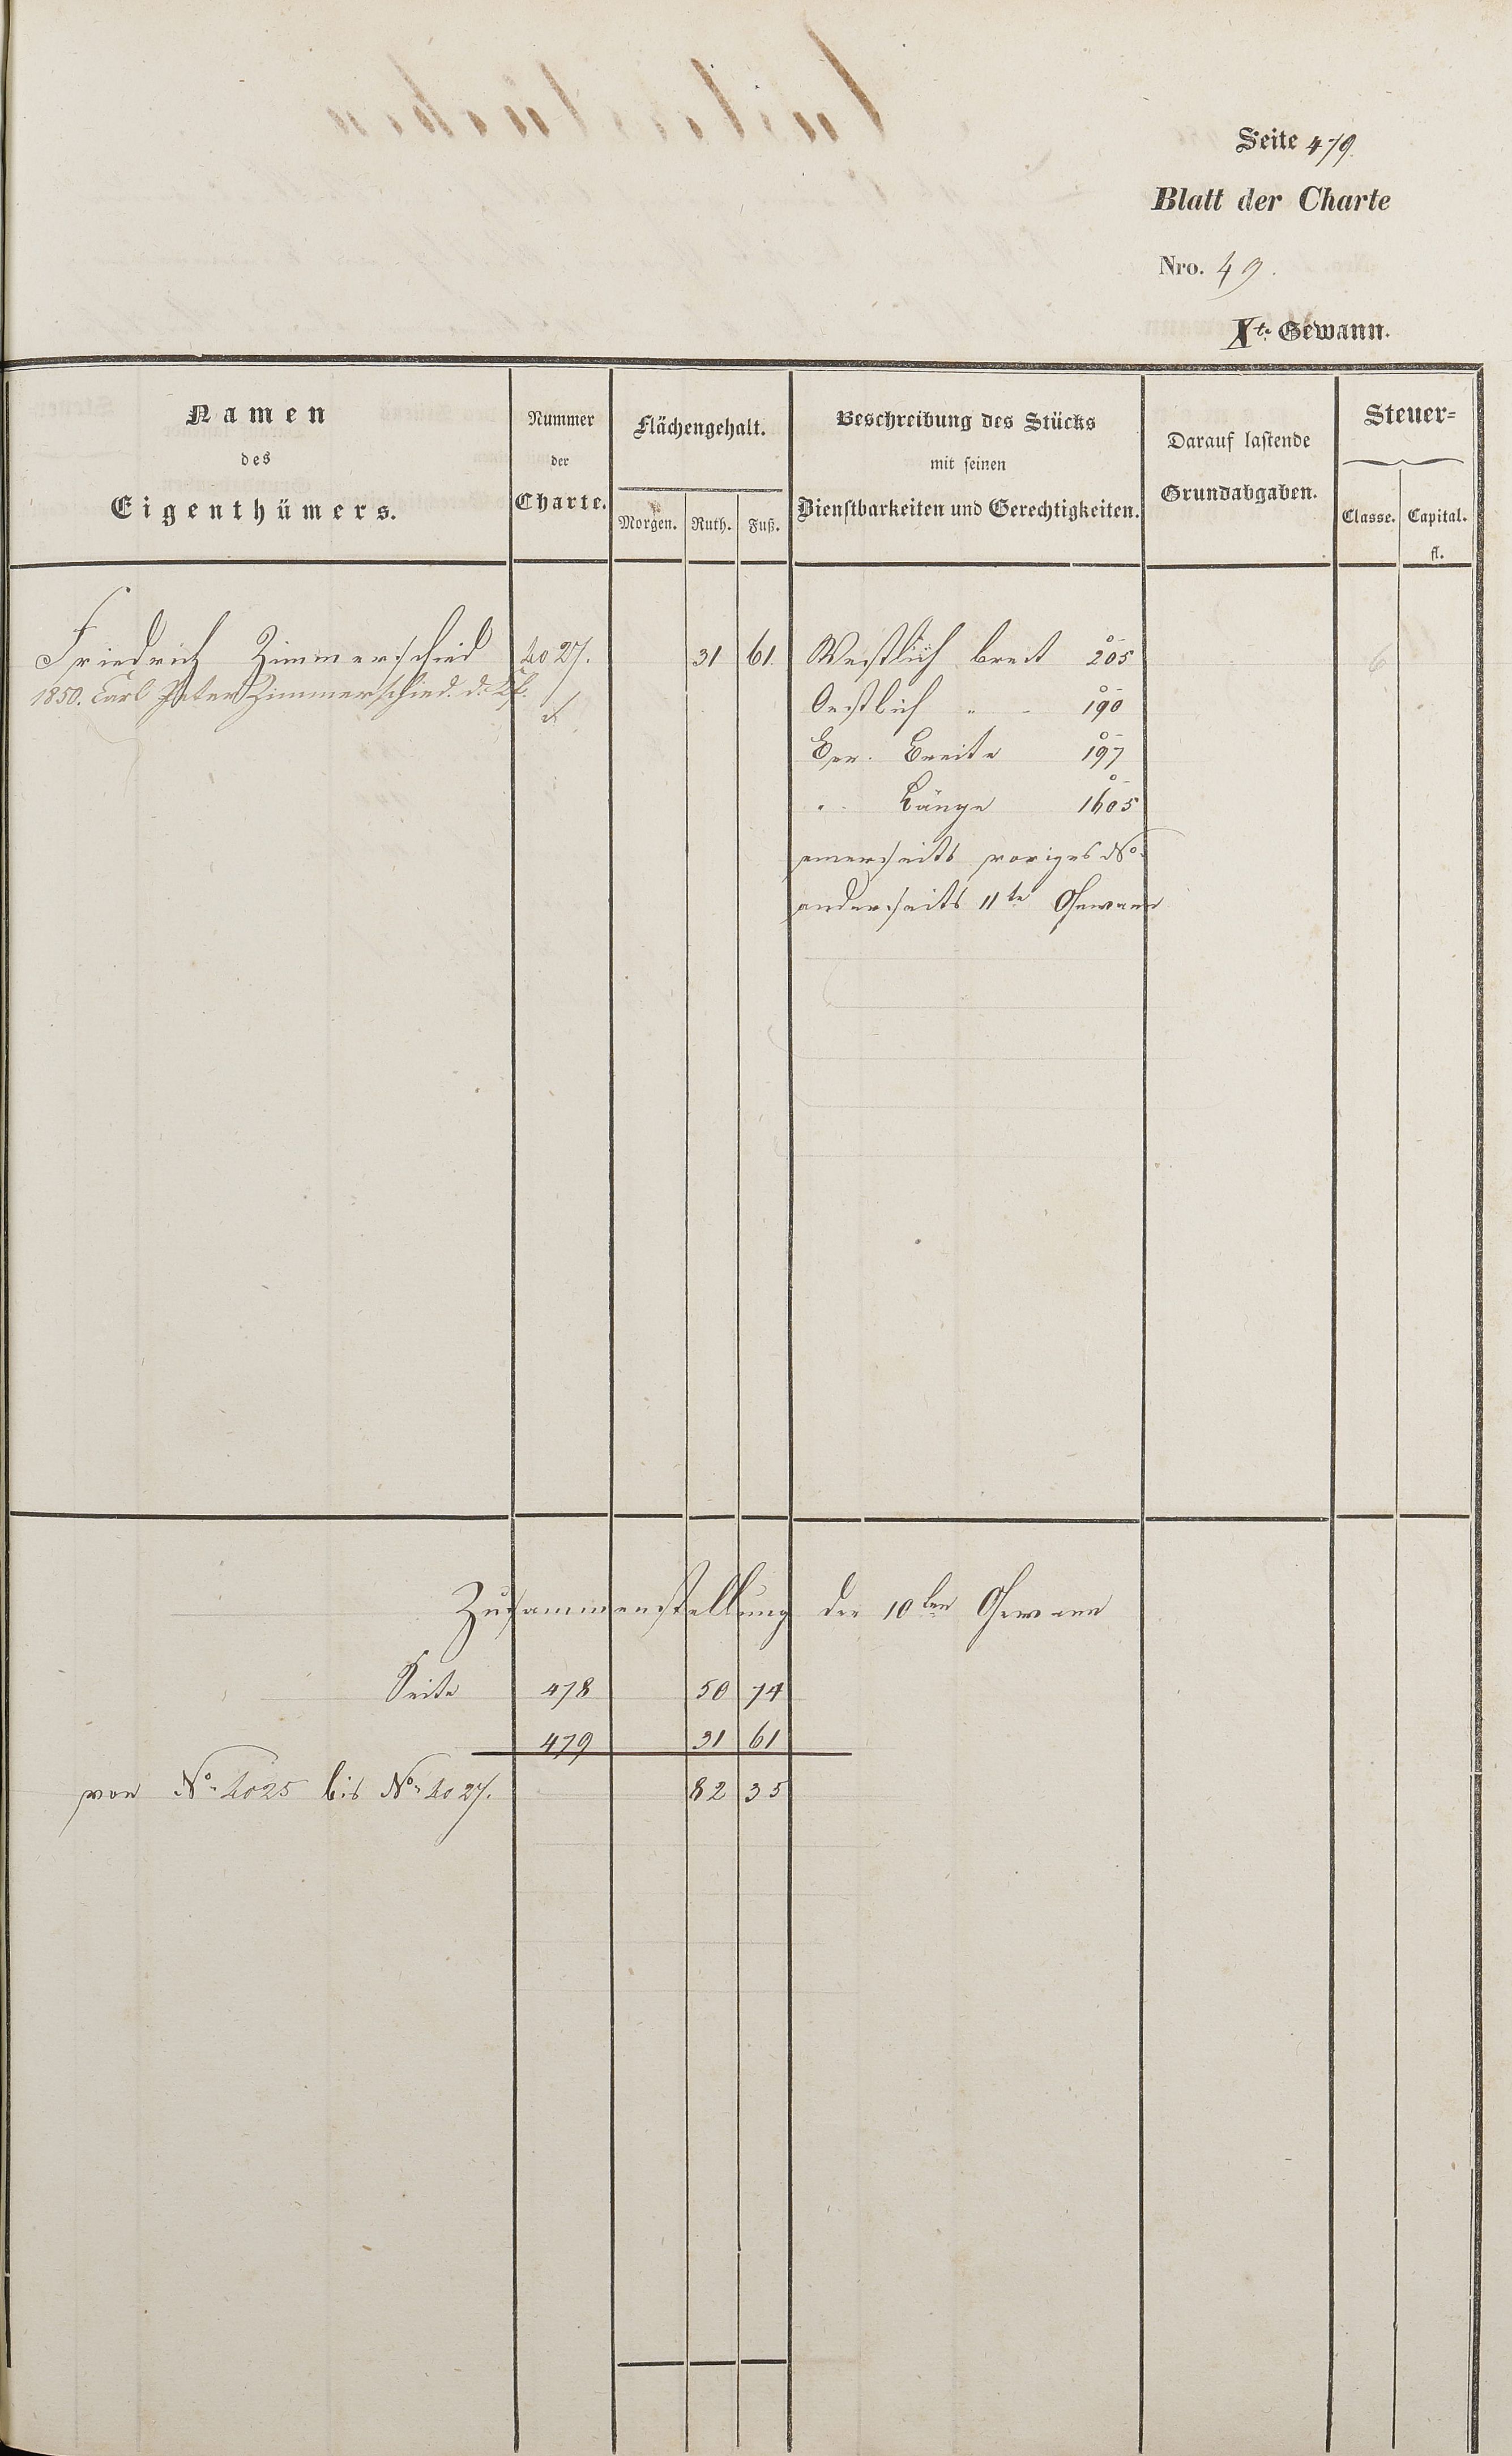 Seite 479.
Blatt der Charte
Nro. 49.
Xte Gewann.
Namen des Eigenthümers.
Nummer der Charte.
Flächengehalt.
Morgen. Ruth. Fuß.
Beschreibung des Stücks mit seinen Dienstbarkeiten und Gerechtigkeiten.
Darauf lastende Grundabgaben.
Steuer-
Classe. Capital. fl.
Friedrich Zimmerschied 4027. 31 61. Westlich breit 205
1850. Carl Peter Zimmerschied
Oestlich " - 190
Brr. Breite 197
" Länge 1605
einerseits voriges No.
anderseits 11te Gewann
6
Zusammenstellung der 10ten Gewann
Seite 478 50 74
479 31 61
von No. 4025 bis No. 4027. 82 35